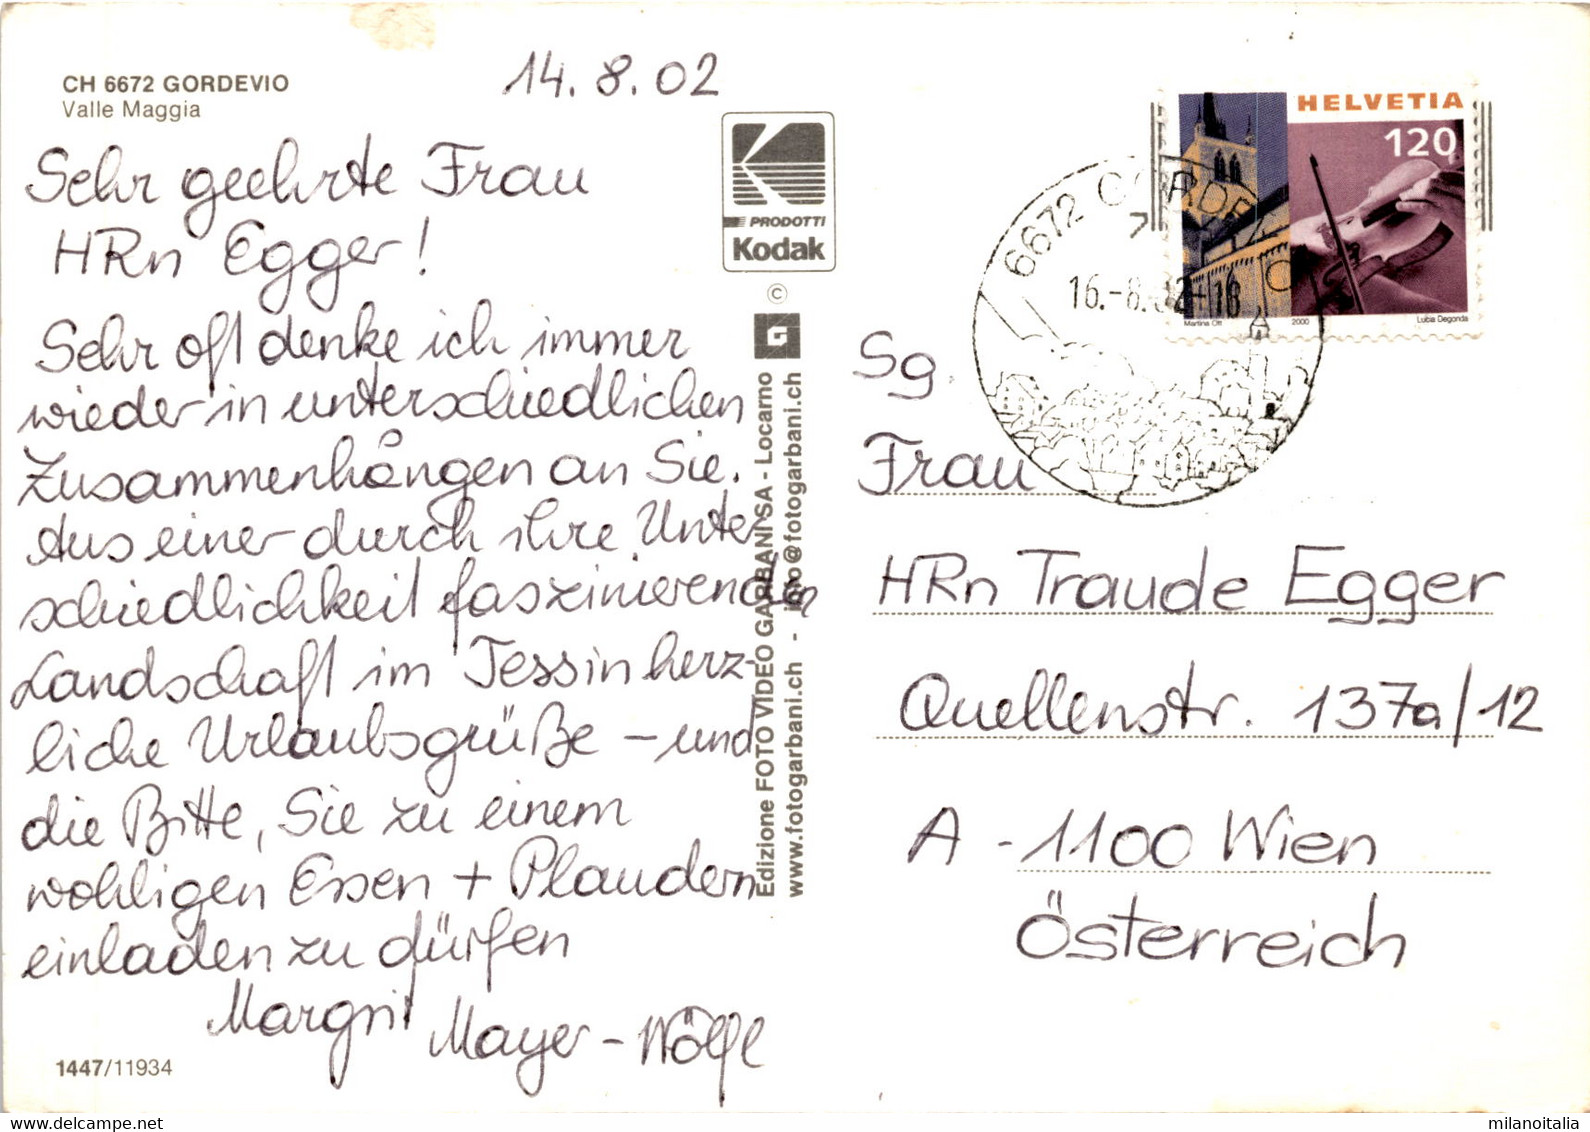 CH 6672 GORDEVIO
Valle Maggia
14. 8. 02
Sehr geehrte Frau
HRn Egger!
Sehr oft denke ich immer
wieder in unterschiedlichen
Zusammenhängen an Sie.
Aus einer durch ihre Unter-
schiedlichkeit faszinierenden
Landschaft im Tessin herz-
liche Urlaubsgrüße - und
die Bitte, Sie zu einem
wohligen Essen + Plaudern
einladen zu dürfen
Margrit Mayer-Wölfl
1447/11934
PRODOTTI
Kodak
©
Edizione FOTO VIDEO GARBANI SA - Locarno
www.fotogarbani.ch - info@fotogarbani.ch
HELVETIA
120
Martina Ott 2000 Luba Degonda
6672 GORDEVIO
16.-8.02-18
Sg.
Frau
HRn Traude Egger
Quellenstr. 137a/12
A - 1100 Wien
Österreich
milanoitalia